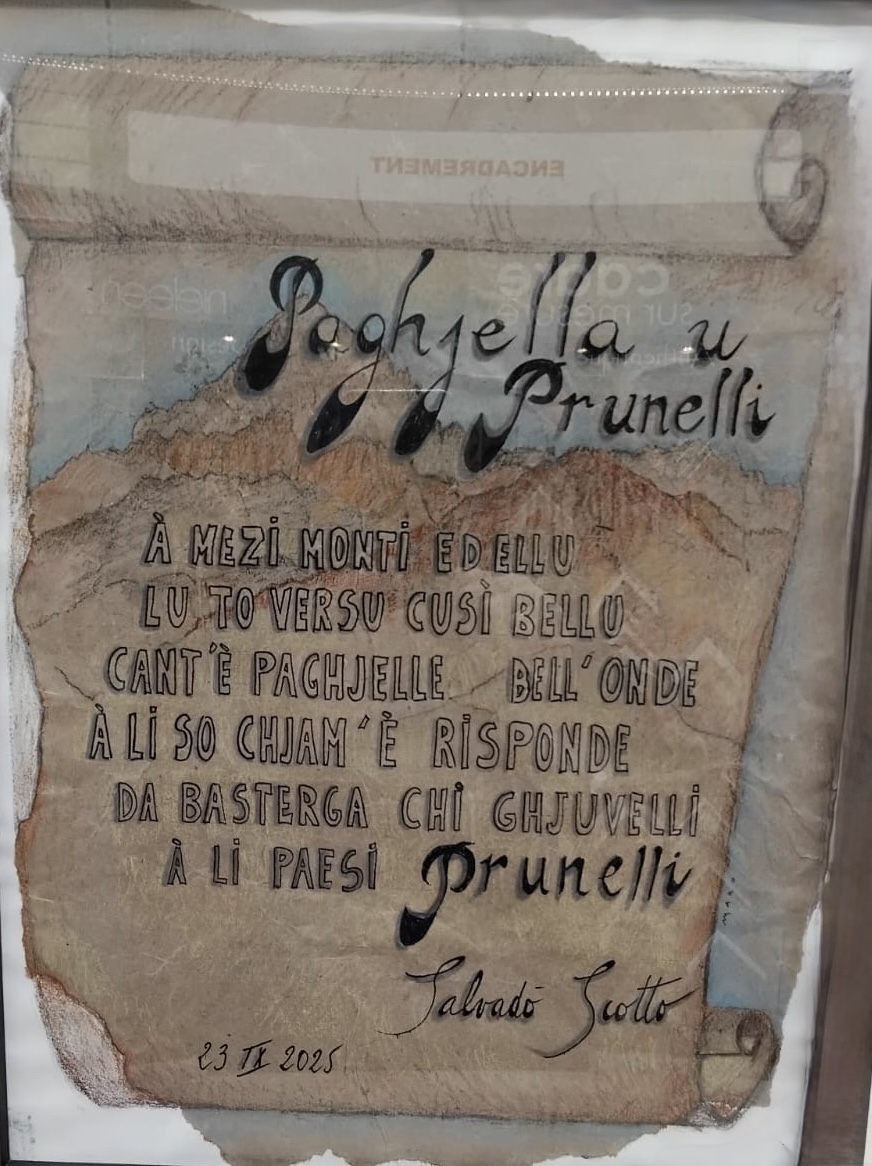 ENCADREMENT
cadre
neleen
sur mesure
Paghjella u
Prunelli
À MEZI MONTI ED ELLU
LU TO VERSU CUSÌ BELLU
CANT'È PAGHJELLE BELL'ONDE
À LI SO CHJAM'È RISPONDE
DA BASTERGA CHÌ GHJUVELLI
À LI PAESI Prunelli
Salvadò Scotto
23 IX 2025